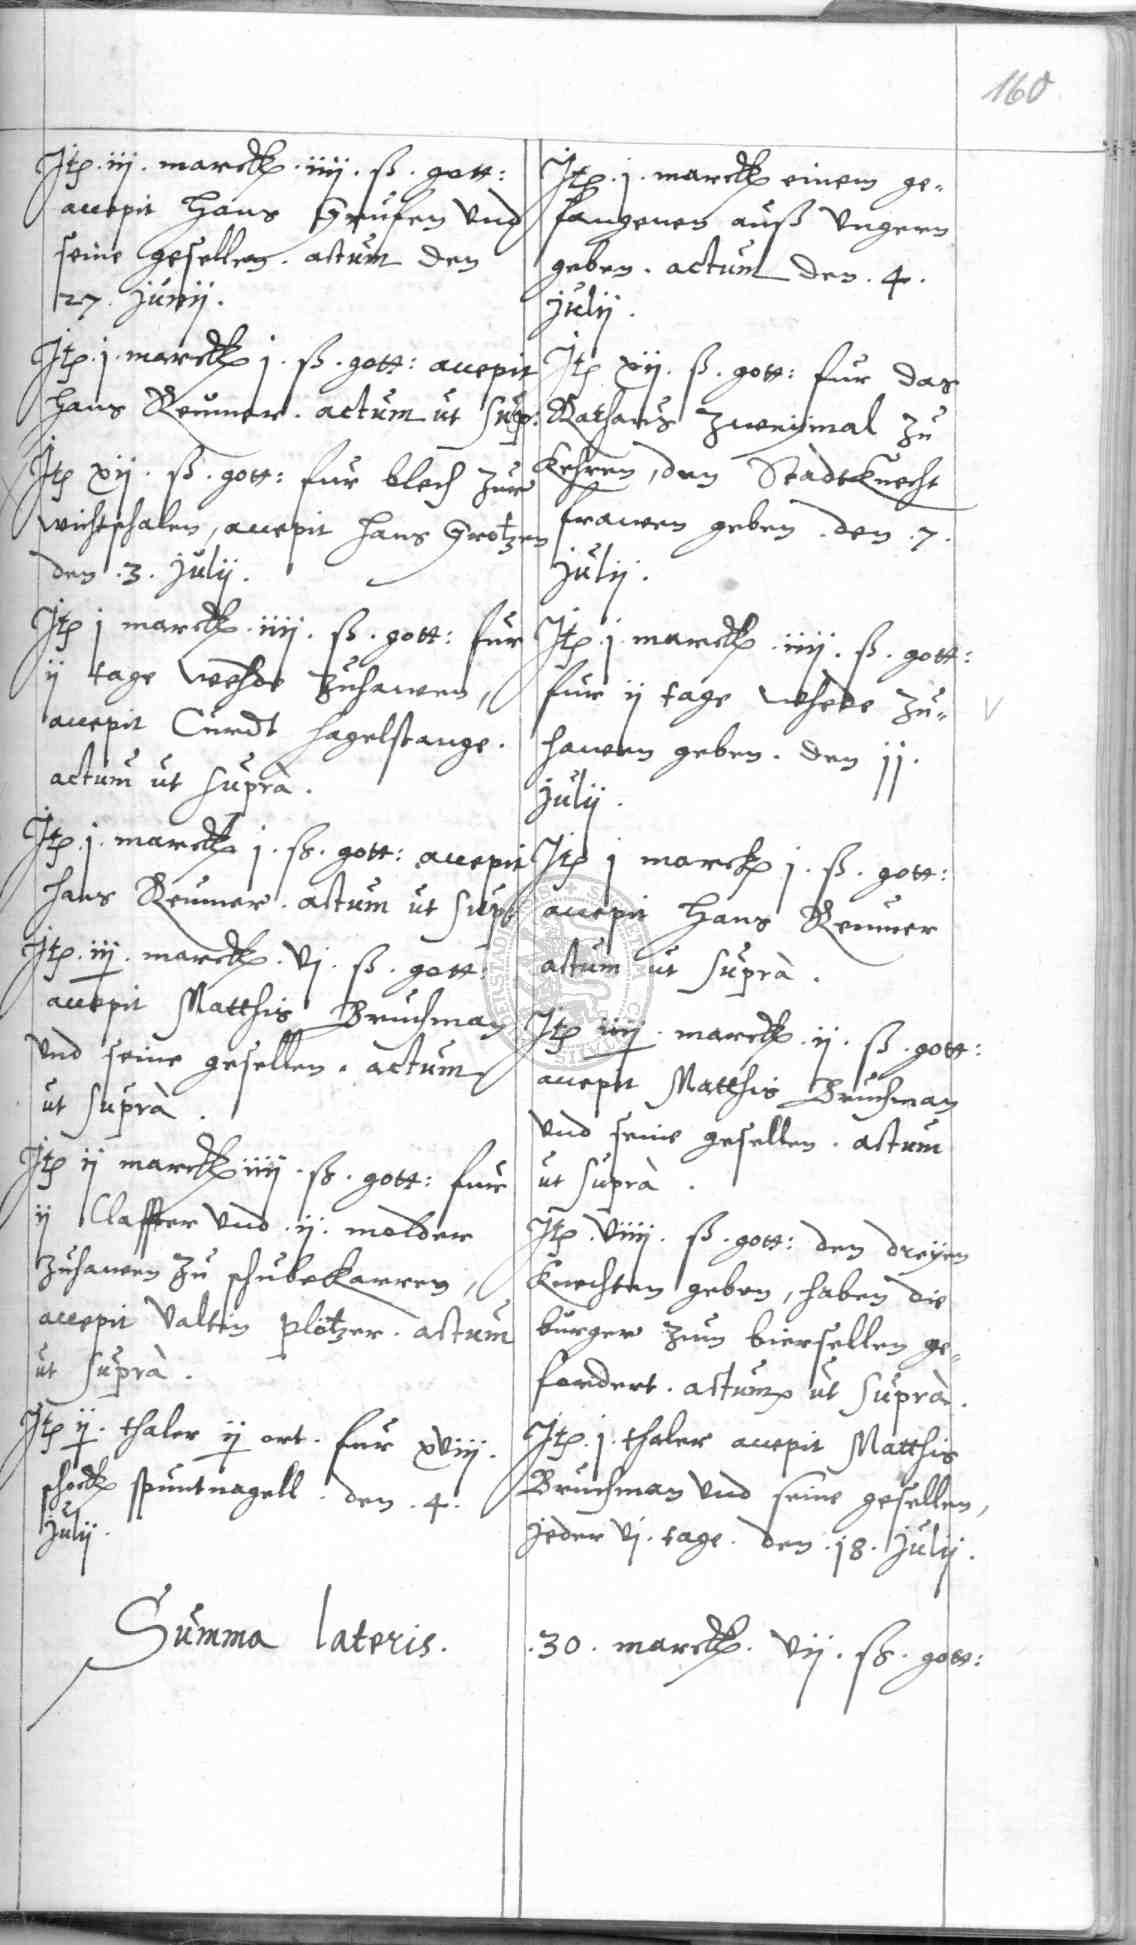 160
Itp. iij. marckp. iiij. ß. gott:
accepit Hans Greufen Und
seine gesellen. actum den
27. Junij.
Itp. j. marckp j. ß. gott: accepit
Hans Reumer. actum ut Sup:
Itp xij. ß. gott: fur blech zur
wichtschalen, accepit Hans Grotzen
den .3. Julij.
Itp j marckp. iiij. ß. gott: fur
ij tage wehde zuhawen,
accepit Curdt Hagelstange.
actum ut Suprà.
Itp. j. marckp j. ß. gott: accepit
Hans Reumer. actum ut Sup:
Itp. iij. marckp. vj. ß. gott:
accepit Matthis Bruchman
Und seine gesellen. actum
ut Suprà.
Itp ij marckp iiij. ß. gott: fur
ij Claffter Und .ij. molder
zuhawen zu schubekarren,
accepit Valtin Plötzer. actum
ut Suprà.
Itp ij. thaler ij ort. fur xviij.
schockp spuntnagell. den .4.
Julij.
Itp. j. marckp einem ge-
fangenen auß Ungern
geben. actum den .4.
Julij.
Itp xij. ß. gott: fur das
Rathaus zweijmal zu
kehren, den Stadtknecht
frawen geben. den .7.
Julij.
Itp. j. marckp. iiij. ß. gott:
fur ij tage whede zu-
hawen geben. den jj.
Julij.
Itp j marckp j. ß. gott:
accepit Hans Reumer
actum ut Suprà.
Itp iiij. marckp. ij. ß. gott:
accepit Matthis Bruchman
Und seine gesellen. actum
ut Suprà.
Itp. viiij. ß. gott: den dreyen
knechten geben, haben die
burger zum biersellen ge-
fordert. actum ut Suprà.
Itp. j. thaler accepit Matthis
Bruchman Und seine gesellen,
jeder vj. tage. den .j8. Julij.
Summa lateris. .30. marckp. vij. ß. gott: